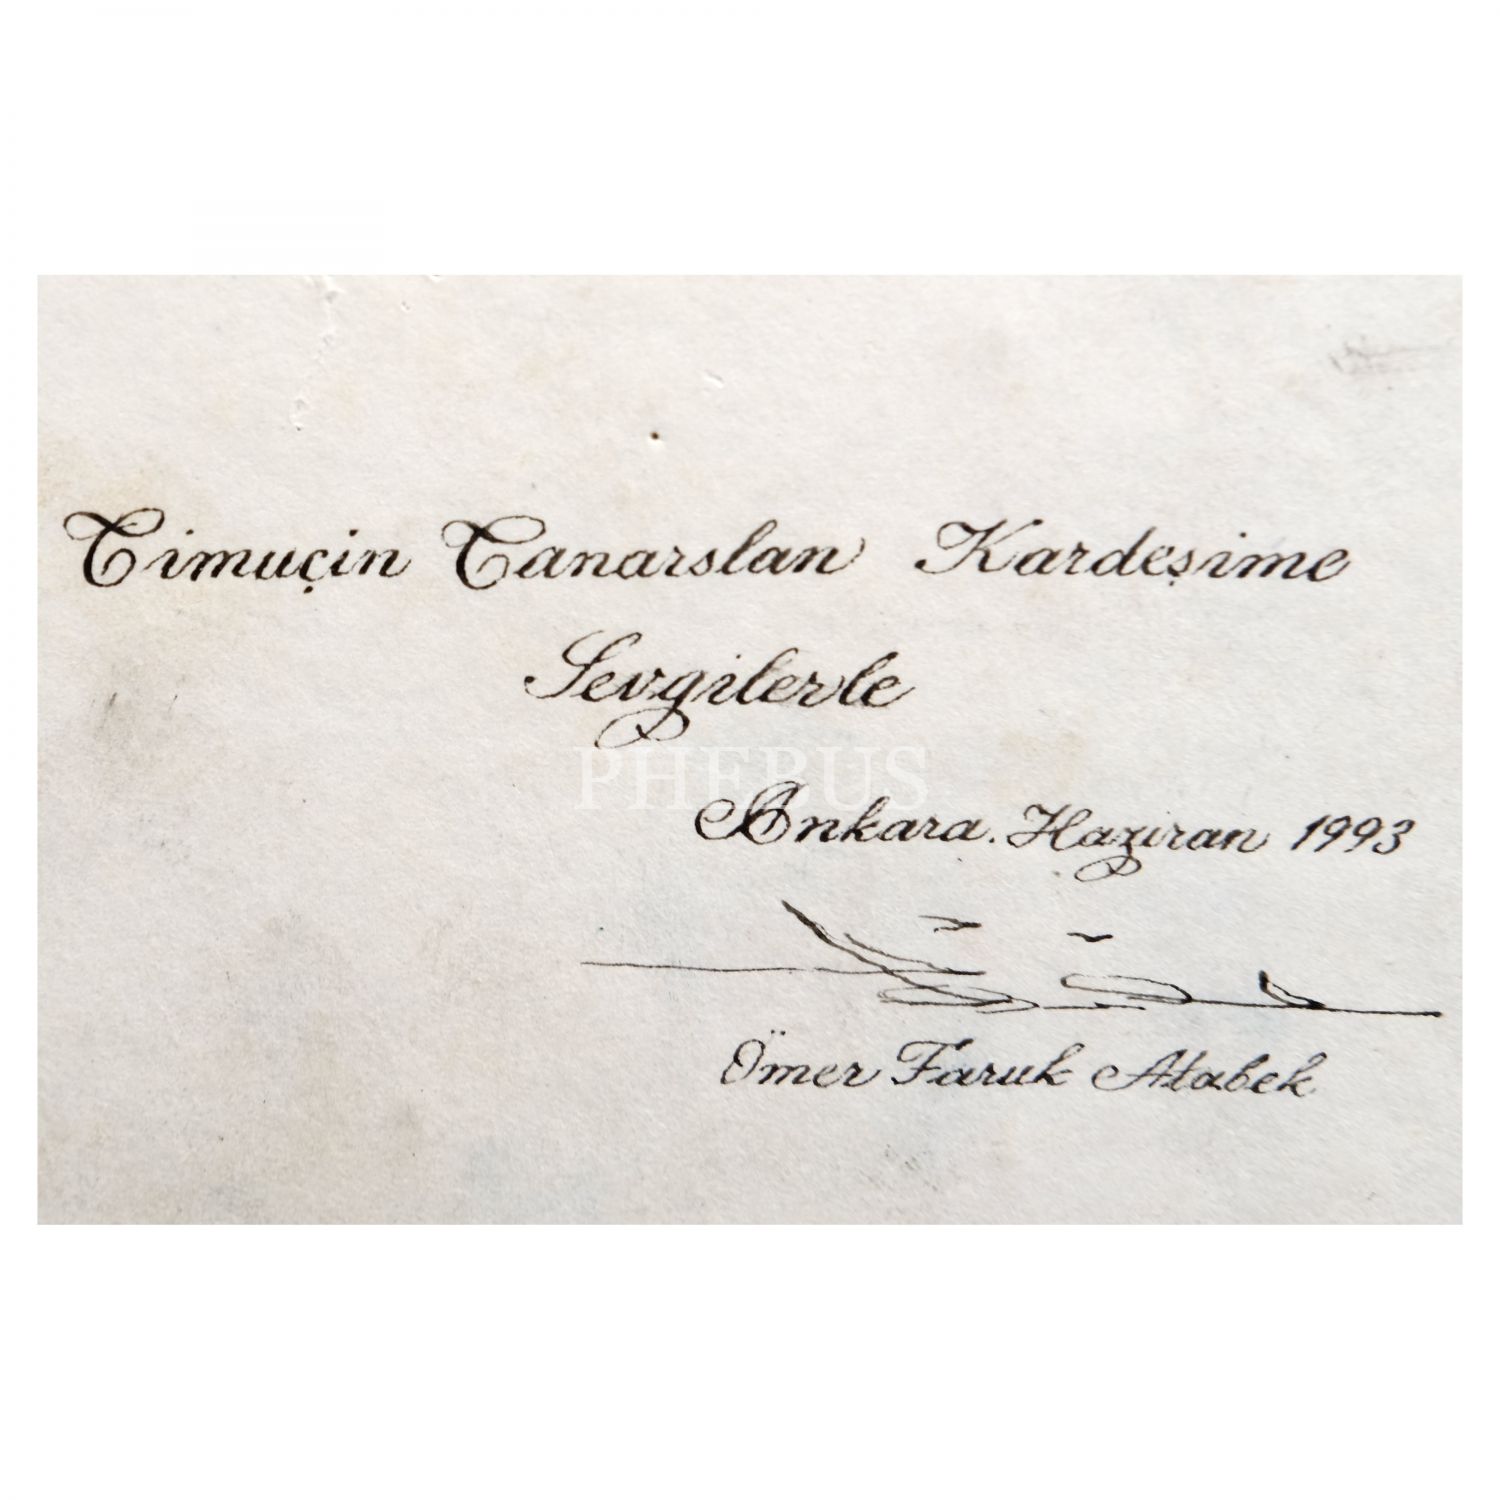 Timuçin Tanarslan Kardeşime
Sevgilerle
PHEBUS
Ankara. Haziran 1993
Ömer Faruk Atabek